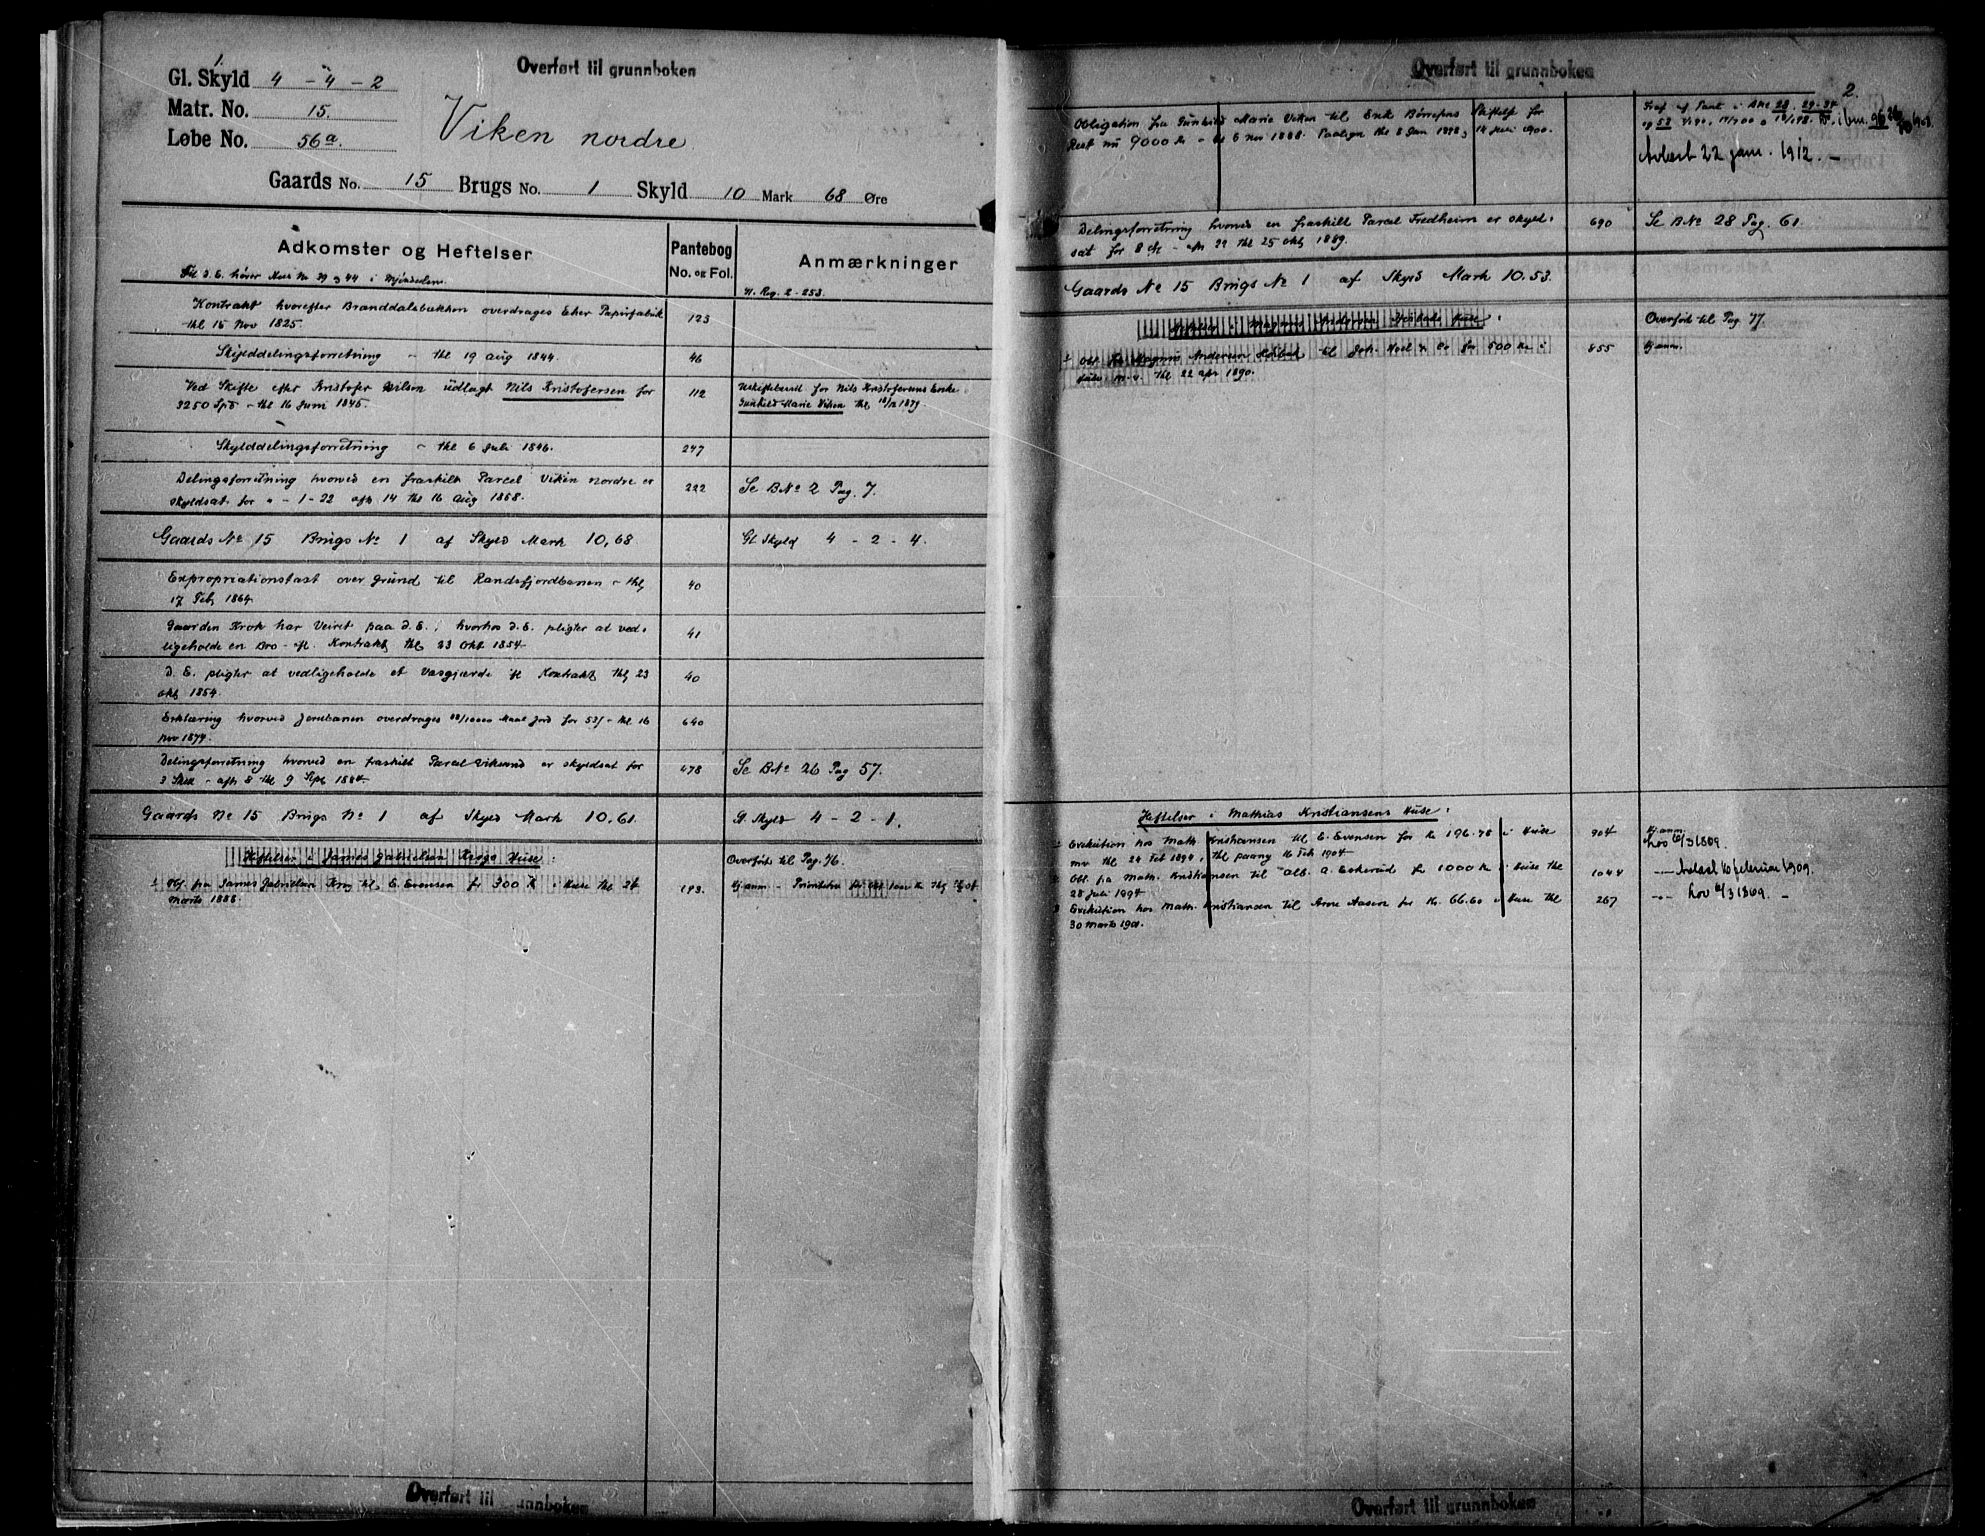 1.
Overført til grunnboken
Gl. Skyld 4 - 4 - 2
Matr. No. 15.
Løbe No. 56a.
Viken nordre
Gaards No. 15 Brugs No. 1 Skyld 10 Mark 68 Øre
Adkomster og Heftelser
Pantebog No. og Fol.
Anmærkninger
Til d. E. hører No 39 og 44 i Mjøndalen
H. Reg. 2 - 253.
Kontrakt hvorefter Branddalsbækken overdrages Eker Papirfabrik
- thl 15 Nov 1825. 123
Skylddelingsforretning - thl 19 aug 1844. 46
Ved Skifte efter Kristofer Nilsen udlagt Nils Kristofersen for
3250 Spd - thl 16 Juni 1845. 112
Uskiftebevil for Nils Kristofersens Enke
Gunhild Marie Viken thl 18/12 1879.
Skylddelingsforretning - thl 6 Juli 1846. 247
Delingsforretning hvorved en fraskilt Parcel Viken nordre er
skyldsat for " - 1 - 22 afh 14 thl 16 aug 1858. 222 Se B No 2 Pag. 7.
Gaards No 15 Brugs No 1 af Skyld Mark 10,68. Gl. Skyld 4 - 2 - 4.
Expropriationstaxt over grund til Randsfjordbanen - thl,
17 Feb 1864. 40
Gaarden Krok har Veiret paa d. E., hvorhos d. E. pligter at ved-
ligeholde en Bro - ifl. Kontrakt thl 23 Okt 1854. 41
D. E. pligter at vedligeholde et gjærde ifl Kontrakt thl 23
okt 1854. 40
Erklæring hvorved Jernbanen overdrages /10000 Maal Jord for 53/- thl 16
Nov 1874. 640
Delingsforretning hvorved en fraskilt Parcel Viklund er skyldsat for
3 Skil - afh 8 thl 9 Spt 1884. 478 Se B No 26 Pag 57.
Gaards No 15 Brugs No 1 af Skyld Mark 10.61. Gl. Skyld 4 - 2 - 1.
Heftelser i James Gabrielsen Krogs Huse: Overført til Pag. 76.
Obl fra James Gabrielsen Krog til E. Evensen for 300 Kr i Huse thl 24
Marts 1888. 193.
Overført til grunnboken
Overført til grunnboken
2.
Obligation fra Gunhild Marie Viken til Enke Børresens Skiftelse for
Rest nu 9000 Kr - thl 6 Nov 1888. Paategn thl 8 Jan 1898, 14 Juli 1900.
Avlæst 22 jan. 1912. -
Delingsforretning hvorved en fraskilt Parcel Fredheim er skyld-
sat for 8 Øre - afh 22 thl 25 okt 1889. 690 Se B No 28 Pag. 61.
Gaards No 15 Brugs No 1 af Skyld Mark 10.53.
Heftelser i Magnus Andersen Huse: Overført til Pag. 77
Obl fra Magnus Andersen til Joh. Moel & Co for 500 Kr i
Huse m. v. thl 22 apr 1890. 855 Kj anm.
Heftelser i Mathias Kristiansens Huse:
Exekution hos Math. Kristiansen til E. Evensen for Kr 196.75 i Huse
mv thl 24 Feb 1894, thl paany 16 Feb 1904. 904 Kj anm. Lov 6/3 1869.
Obl fra Math. Kristiansen til Alb. A. Eskerud for 1000 Kr i huse thl
28 Juli 1904 1044 Avlæst 16 februar 1909.
Exekution hos Math. Kristiansen til Arne Aasen for Kr. 66.60 i huse thl
30 Marts 190 267 Lov 6/3 1869. -
Overført til grunnboken